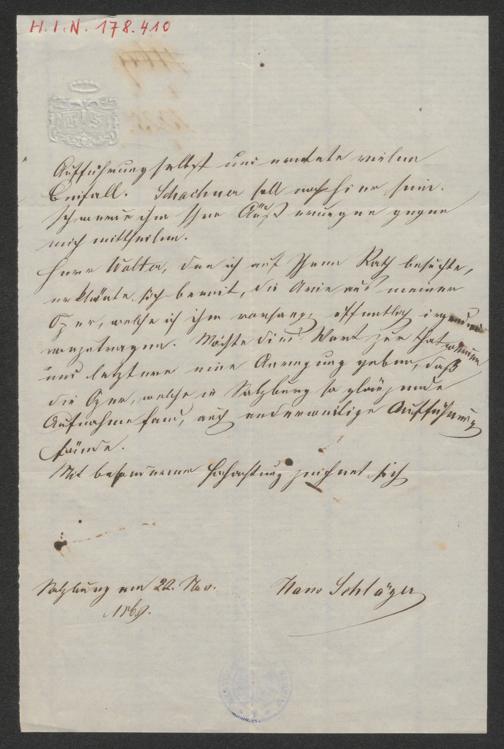 H.I.N. 178.410
Aufführung selbst und erntete vielen
Beifall. Schachner soll noch hier sein.
ihm Ihre gegen
mich mittheilen.
Herr Walter, den ich auf Ihren Rath besuchte,
erklärte sich bereit, die Arie aus meiner
Oper, welche ich ihm vorsang, öffentlich
vorzutragen. Möchte dies Wort zur That werden
und letztere eine Anregung geben, daß
die Oper, welche in Salzburg so glänzende
Aufnahme fand, auch anderweitige Aufführung
fände.
Mit besonderer Hochachtung zeichnet sich
Salzburg am 22. Nov.
1869.
Hans Schläger